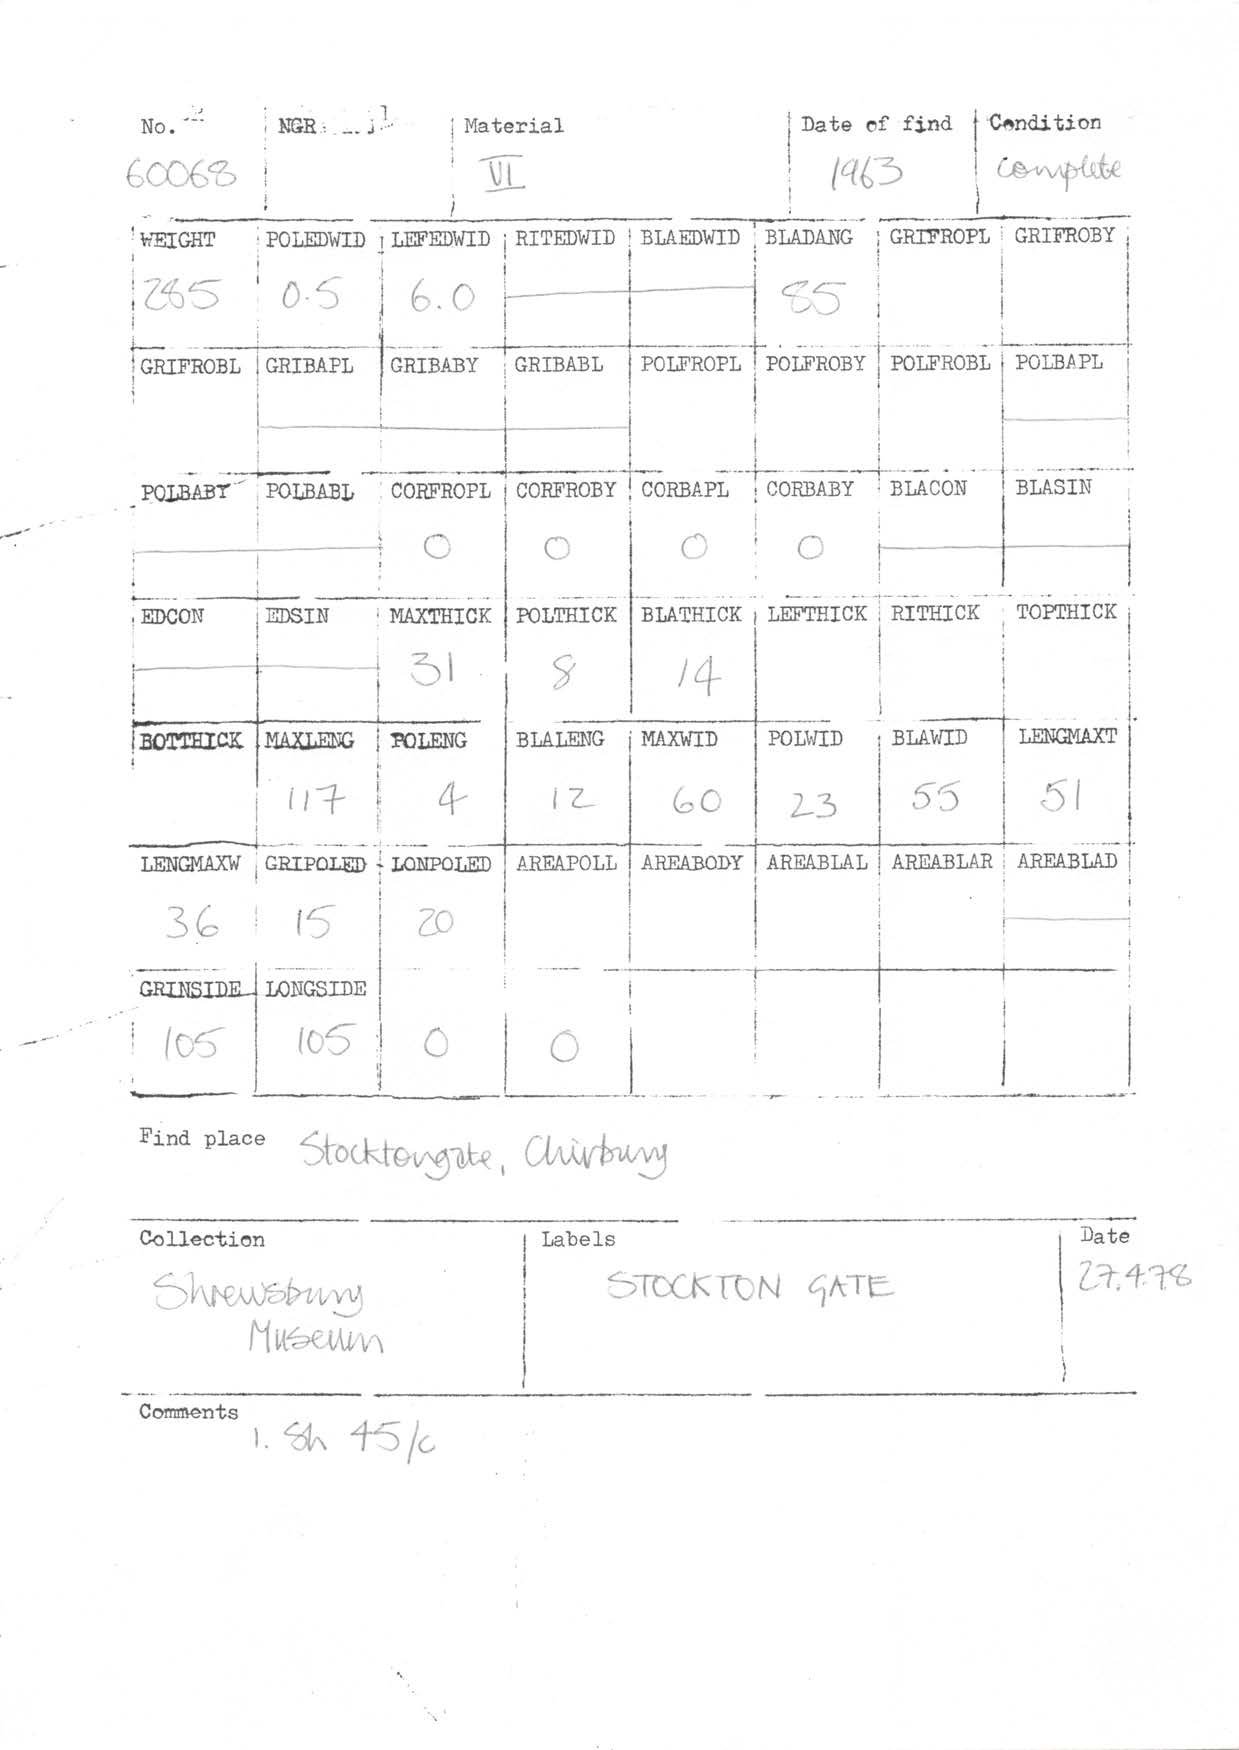 No. NGR Material Date of find Condition
60068 VI 1963 complete
WEIGHT POLEDWID LEFEDWID RITEDWID BLAEDWID BLADANG GRIFROPL GRIFROBY
285 0.5 6.0 85
GRIFROBL GRIBAPL GRIBABY GRIBABL POLFROPL POLFROBY POLFROBL POLBAPL
POLBABY POLBABL CORFROPL CORFROBY CORBAPL CORBABY BLACON BLASIN
0 0 0 0
EDCON EDSIN MAXTHICK POLTHICK BLATHICK LEFTHICK RITHICK TOPTHICK
31 8 14
BOTTHICK MAXLENG POLENG BLALENG MAXWID POLWID BLAWID LENGMAXT
117 4 12 60 23 55 51
LENGMAXW GRIPOLED LONPOLED AREAPOLL AREABODY AREABLAL AREABLAR AREABLAD
36 15 20
GRINSIDE LONGSIDE
105 105 0 0
Find place Stocktongate, Chirbury
Collection Labels Date
Shrewsbury STOCKTON GATE 27.4.78
Museum
Comments
1. Sh 45/c